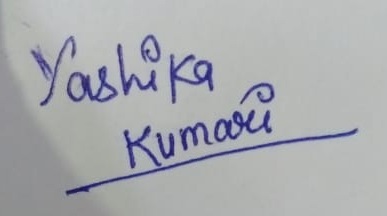 Yashika
Kumari